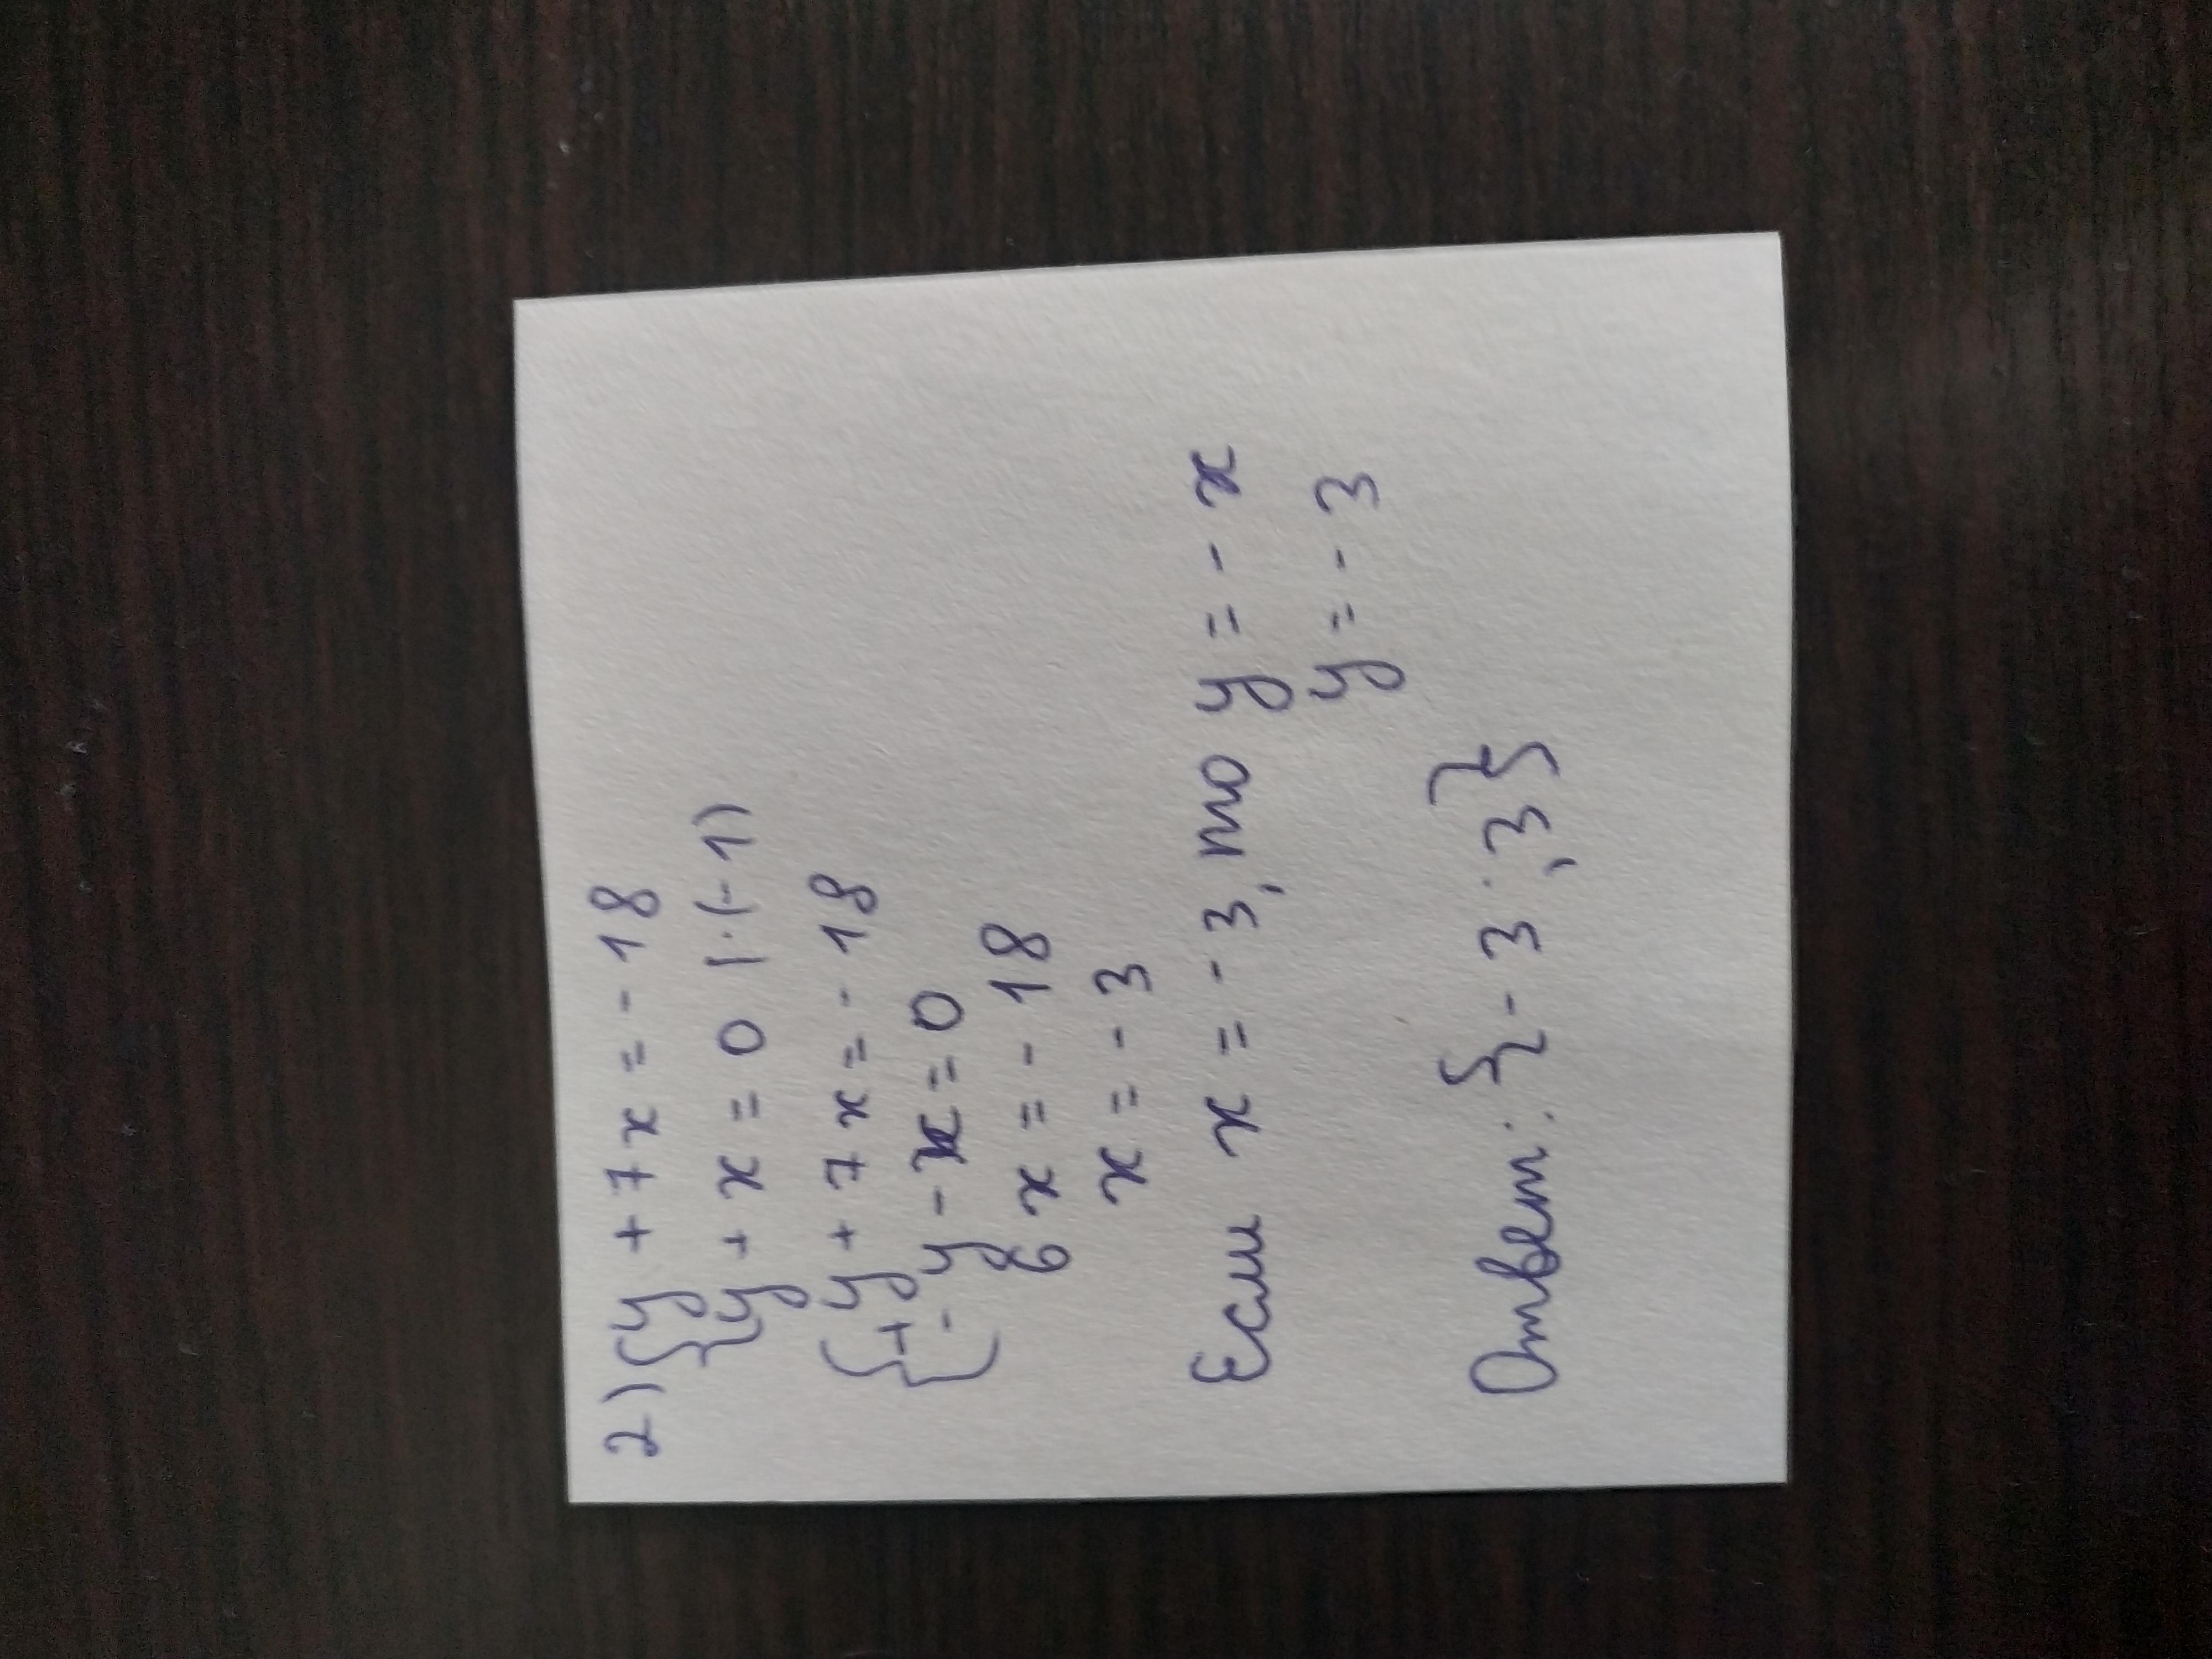 2) { y + 7x = - 18
{ y + x = 0 | · (- 1)
{ + y + 7x = - 18
- y - x = 0
6x = - 18
x = - 3
Если x = - 3, то y = - x
y = - 3
Ответ: {- 3 ; 3}